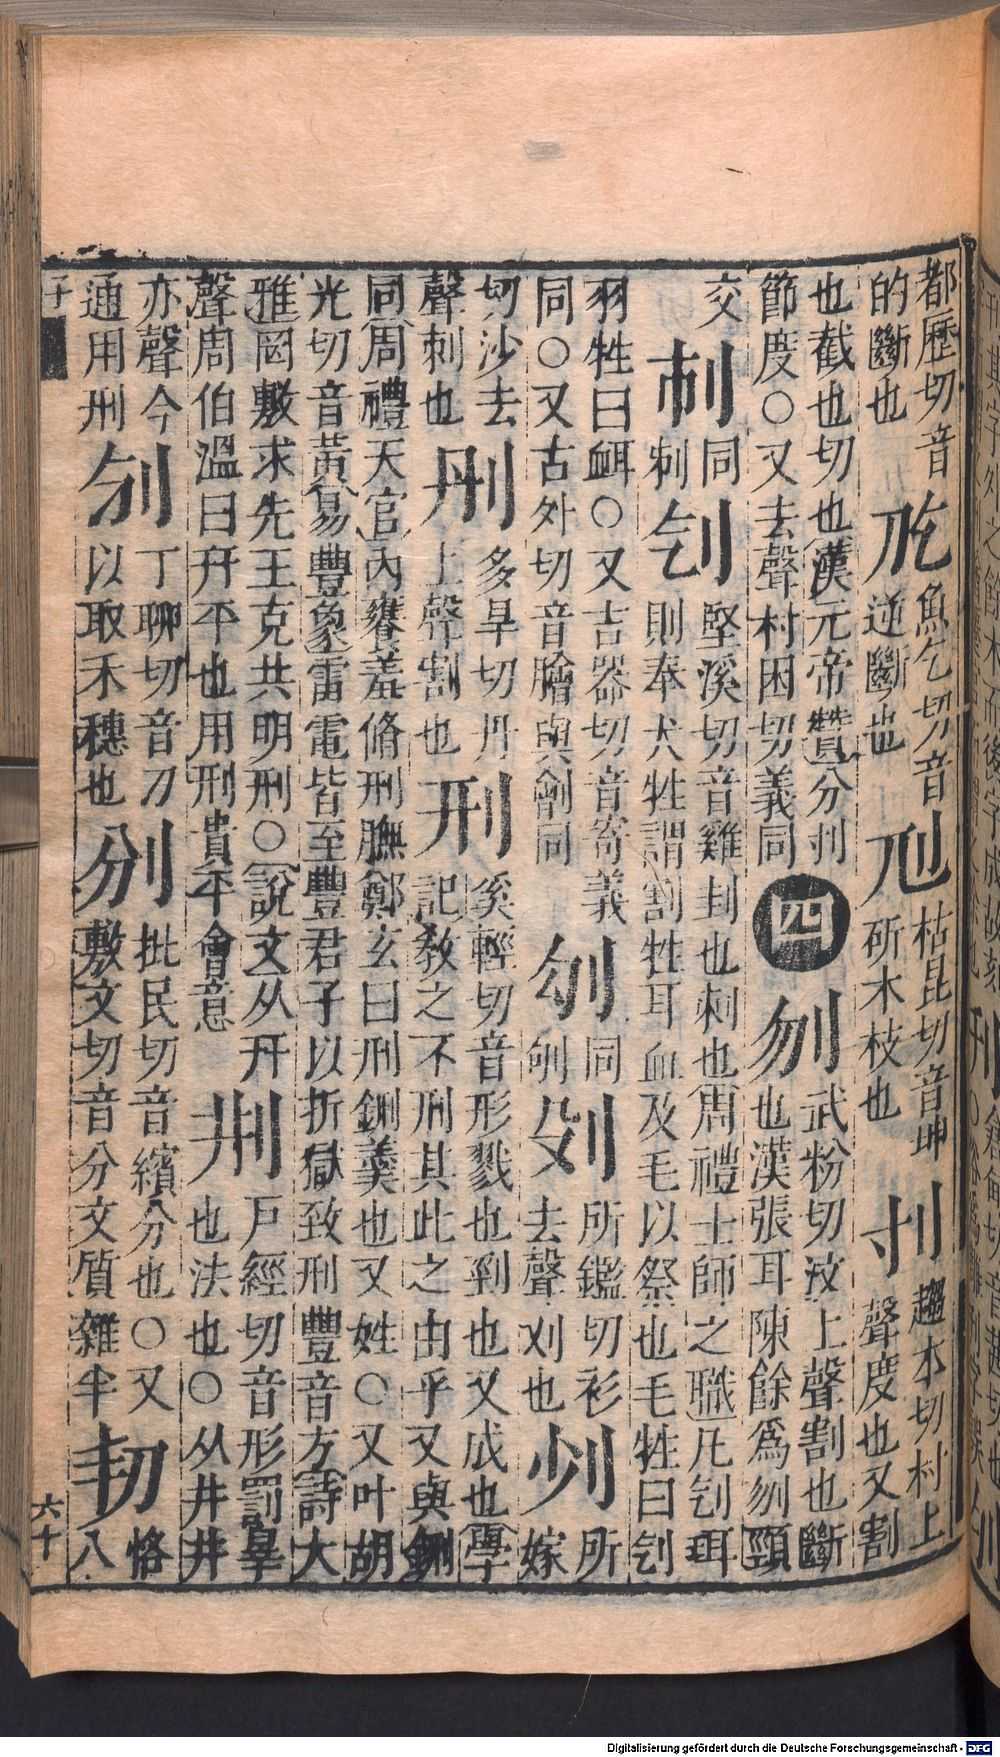 都歷切音
的斷也
魚乞切音
逆斷也
枯昆切音坤
斫木枝也
刌
趨本切村上
聲度也又割
也截也切也漢元帝贊分刌
節度○又去聲村困切義同
四
刎
武粉切汶上聲割也斷
也漢張耳陳餘爲刎頸
交
同
刺
刉
堅溪切音雞刲也刺也周禮士師之職凡刉珥
則奉犬牲謂割牲耳血及毛以祭也毛牲曰刉
羽牲曰衈○又吉器切音寄義
同○又古外切音膾與劊同
同
所鑑切衫
去聲刈也
所
嫁
切沙去
聲刺也
多旱切丹
上聲割也
刑
奚輕切音形戮也剄也又成也學
記教之不刑其此之由乎又與鉶
同周禮天官內饔羞脩刑膴鄭玄曰刑鉶羹也又姓○又叶胡
光切音黃易豐象雷電皆至豐君子以折獄致刑豐音方詩大
雅罔敷求先王克共明刑○說文从幵
聲周伯溫曰幵平也用刑貴平會意
㓝
戶經切音形罰辠
也法也○从井井
亦聲今
通用刑
丁聊切音刀
以取禾穗也
批民切音繽分也○又
敷文切音分文質雜半
㓞
恪
八
子
六十
Digitalisierung gefördert durch die Deutsche Forschungsgemeinschaft - DFG